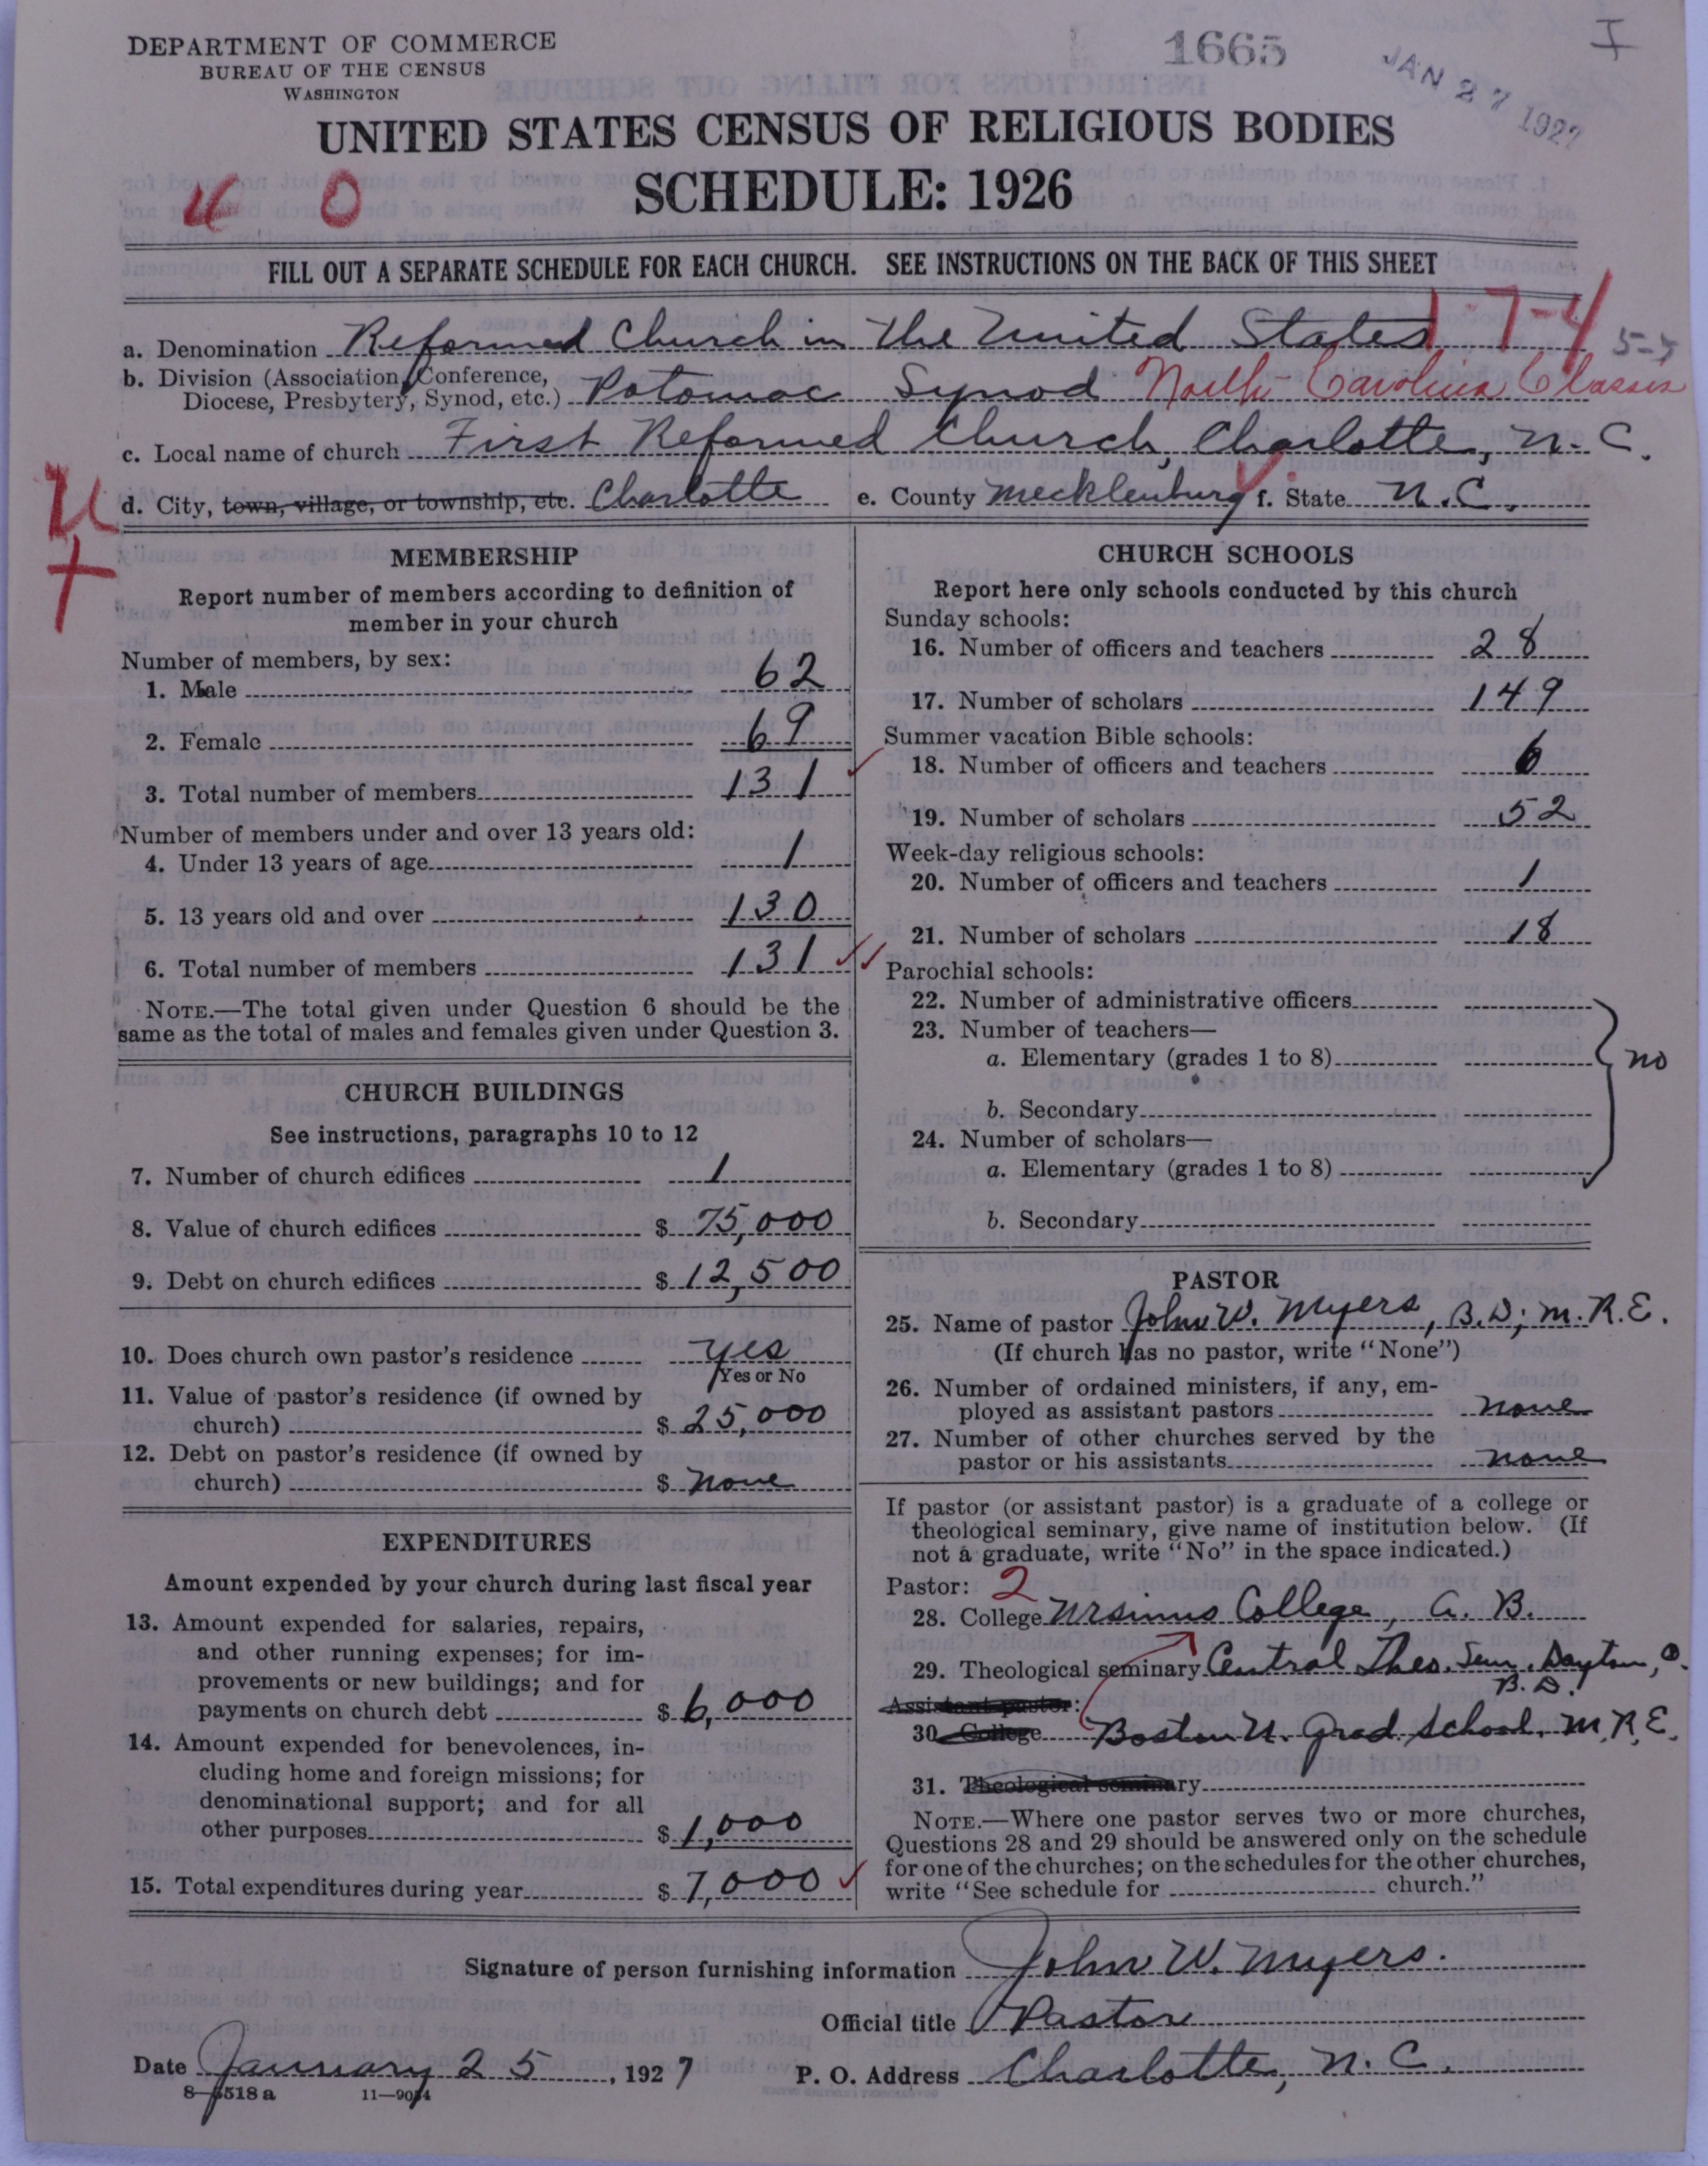 DEPARTMENT OF COMMERCE
BUREAU OF THE CENSUS
WASHINGTON
1665
I
JAN 27 1927
UNITED STATES CENSUS OF RELIGIOUS BODIES
SCHEDULE: 1926
U O
FILL OUT A SEPARATE SCHEDULE FOR EACH CHURCH. SEE INSTRUCTIONS ON THE BACK OF THIS SHEET
17-4
a. Denomination Reformed Church in the United States
b. Division (Association, Conference,
Diocese, Presbytery, Synod, etc.) Potomac Synod North Carolina Classis
c. Local name of church First Reformed Church, Charlotte, N.C.
d. City, town, village, or township, etc. Charlotte e. County Mecklenburg f. State N.C.
U
+
MEMBERSHIP
Report number of members according to definition of
member in your church
Number of members, by sex:
1. Male 62
2. Female 69
3. Total number of members 131
Number of members under and over 13 years old:
4. Under 13 years of age 1
5. 13 years old and over 130
6. Total number of members 131
NOTE.—The total given under Question 6 should be the
same as the total of males and females given under Question 3.
CHURCH BUILDINGS
See instructions, paragraphs 10 to 12
7. Number of church edifices 1
8. Value of church edifices $ 75,000
9. Debt on church edifices $ 12,500
10. Does church own pastor's residence yes
Yes or No
11. Value of pastor's residence (if owned by
church) $ 25,000
12. Debt on pastor's residence (if owned by
church) $ none
EXPENDITURES
Amount expended by your church during last fiscal year
13. Amount expended for salaries, repairs,
and other running expenses; for im-
provements or new buildings; and for
payments on church debt $ 6,000
14. Amount expended for benevolences, in-
cluding home and foreign missions; for
denominational support; and for all
other purposes $ 1,000
15. Total expenditures during year $ 7,000
CHURCH SCHOOLS
Report here only schools conducted by this church
Sunday schools:
16. Number of officers and teachers 28
17. Number of scholars 149
Summer vacation Bible schools:
18. Number of officers and teachers 6
19. Number of scholars 52
Week-day religious schools:
20. Number of officers and teachers 1
21. Number of scholars 18
Parochial schools:
22. Number of administrative officers
23. Number of teachers—
a. Elementary (grades 1 to 8) no
b. Secondary
24. Number of scholars—
a. Elementary (grades 1 to 8)
b. Secondary
PASTOR
25. Name of pastor John W. Myers, B.D; M.R.E.
(If church has no pastor, write "None")
26. Number of ordained ministers, if any, em-
ployed as assistant pastors none
27. Number of other churches served by the
pastor or his assistants none
If pastor (or assistant pastor) is a graduate of a college or
theological seminary, give name of institution below. (If
not a graduate, write "No" in the space indicated.)
Pastor: 2
28. College Ursinus College, A.B.
29. Theological seminary Central Theo. Sem. Dayton, O.
B.D.
Assistant pastor:
30. College Boston U. Grad School, M.R.E.
31. Theological seminary
NOTE.—Where one pastor serves two or more churches,
Questions 28 and 29 should be answered only on the schedule
for one of the churches; on the schedules for the other churches,
write "See schedule for church."
Signature of person furnishing information John W. Myers.
Official title Pastor
Date January 25, 1927 P. O. Address Charlotte, N.C.
8-6518a 11-9014